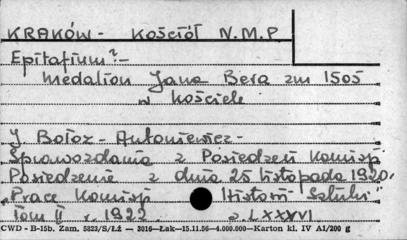 KRAKÓW - KOŚCIÓŁ N.M.P.
Epitafium? -
Medalion Jana Bera zm 1505
w kościele
J Bołoz - Antoniewicz -
Sprawozdania z Posiedzeń Komisji
Posiedzenie z dnia 25 listopada 1920.
"Prace Komisji Historii Sztuki"
Tom II r. 1922 s. LXXXVI
CWD - B-15b. Zam. 5823/S/ŁŻ — 3016—Łak—15.11.56—4.000.000—Karton kl. IV A1/200 g